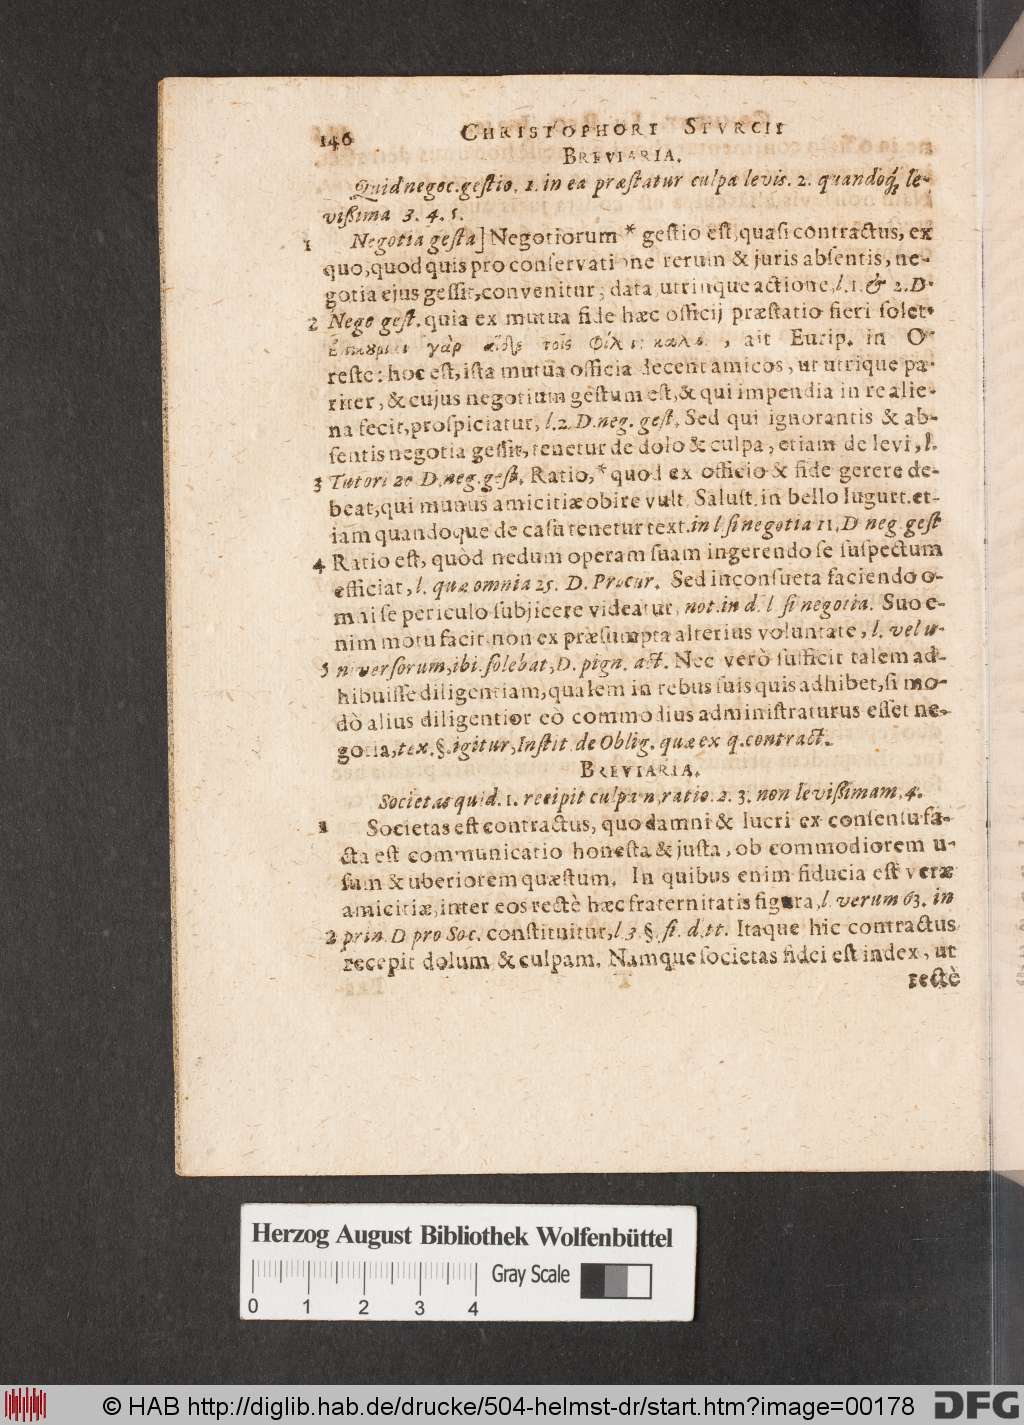 146 CHRISTOPHORI STVRCII
BREVIARIA.
Quid negoc. gestio. 1. in ea præstatur culpa levis. 2. quandoq; le-
vißima 3. 4. 5.
1 Negotia gesta] Negotiorum * gestio est, quasi contractus, ex
quo, quod quis pro conservatione rerum & juris absentis, ne-
gotia ejus gessit, convenitur; data utrinque actione, l. 1. & 2. D.
2 Nego gest. quia ex mutua fide hæc officij præstatio fieri solet.
γὰρ τοῖς , ait Eurip. in O-
reste: hoc est, ista mutua officia decent amicos, ut utrique pa-
riter, & cujus negotium gestum est, & qui impendia in re alie-
na fecit, prospiciatur, l. 2. D. neg. gest. Sed qui ignorantis & ab-
sentis negotia gessit, tenetur de dolo & culpa, etiam de levi, l.
3 Tutori 20 D. neg. gest. Ratio, * quod ex officio & fide gerere de-
beat, qui munus amicitiæ obire vult. Salust. in bello Iugurt. et-
iam quandoque de casu tenetur text. in l si negotia 11, D neg. gest
4 Ratio est, quòd nedum operam suam ingerendo se suspectum
efficiat, l. quæ omnia 25. D. Procur. Sed inconsueta faciendo o-
mni se periculo subjicere videatur, not. in d. l si negotia. Suo e-
nim motu facit non ex præsumpta alterius voluntate, l. vel u-
5 niversorum, ibi. solebat, D. pign. act. Nec verò sufficit talem ad-
hibuisse diligentiam, qualem in rebus suis quis adhibet, si mo-
dò alius diligentior eò commodius administraturus esset ne-
gotia, tex. §. igitur, Instit. de Oblig. quæ ex q. contract.
BREVIARIA.
Societas quid. 1. recipit culpam, ratio. 2. 3. non levißimam, 4.
1 Societas est contractus, quo damni & lucri ex consensu fa-
cta est communicatio honesta & justa, ob commodiorem u-
sum & uberiorem quæstum. In quibus enim fiducia est veræ
amicitiæ, inter eos rectè hæc fraternitatis figura, l. verum 63. in
2 prin. D pro Soc. constituitur, l 3 §. fi. d. tt. Itaque hic contractus
recepit dolum & culpam. Namque societas fidei est index, ut
rectè
Herzog August Bibliothek Wolfenbüttel
0 1 2 3 4 Gray Scale
© HAB http://diglib.hab.de/drucke/504-helmst-dr/start.htm?image=00178 DFG